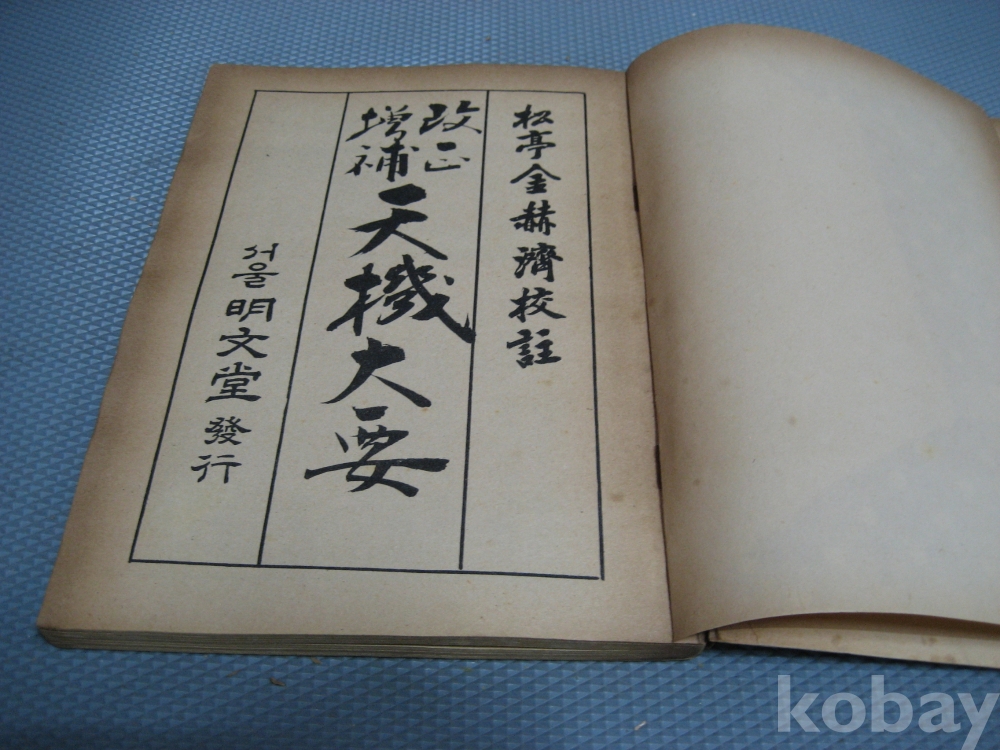 松亭金赫濟校註
改正
增補
天機大要
서울明文堂發行
kobay